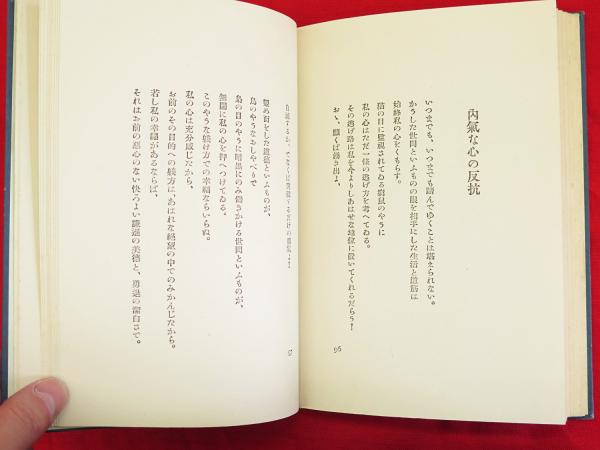 内氣な心の反抗
いつまでも、いつまでも踏んでゆくことは堪えられない。
かうした世間といふものの眼を相手にした生活と道筋は
始終私の心をくもらす。
猫の目に監視されてゐる鼠のやうに
私の心はただ一條の逃げ方を考へてゐる。
その逃げ路は私を今よりしあはせな地位に置いてくれるだらう?
おゝ、願くば湧き出よ、
96
自滅するか、でなくば突破するだけの
堅め面をした道德といふものが、
鳥のやうなおしやべりで
梟の目のやうに暗黒にのみ働きかける世間といふものが、
無闇に私の心を押へつけてゐる。
このやうな娘け方での幸福ならいらぬ。
私の心は充分感じたから、
お前のその目的への娘方は、あはれな絕望の中でのみかんじたから。
若し私の幸福があるならば、
それはお前の惡心のない快ろよい謙遜の美德と、勇退の潔白さで。
97